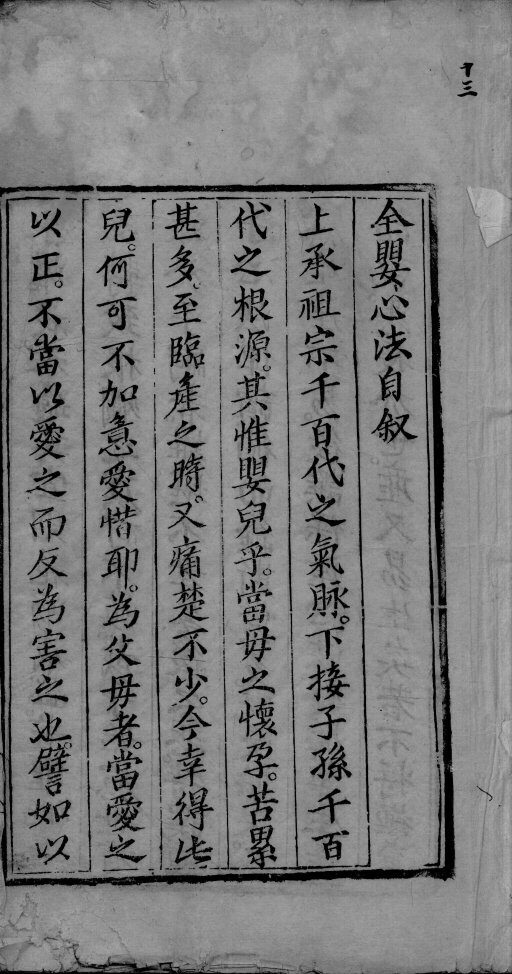 十三
全嬰心法自叙
上承祖宗千百代之氣脉。下接子孫千百
代之根源。其惟嬰兒乎。當母之懷孕。苦累
甚多。至臨產之時。又痛楚不少。今幸得此
兒。何可不加意愛惜耶。為父母者。當愛之
以正。不當以愛之而反為害之也。譬如以